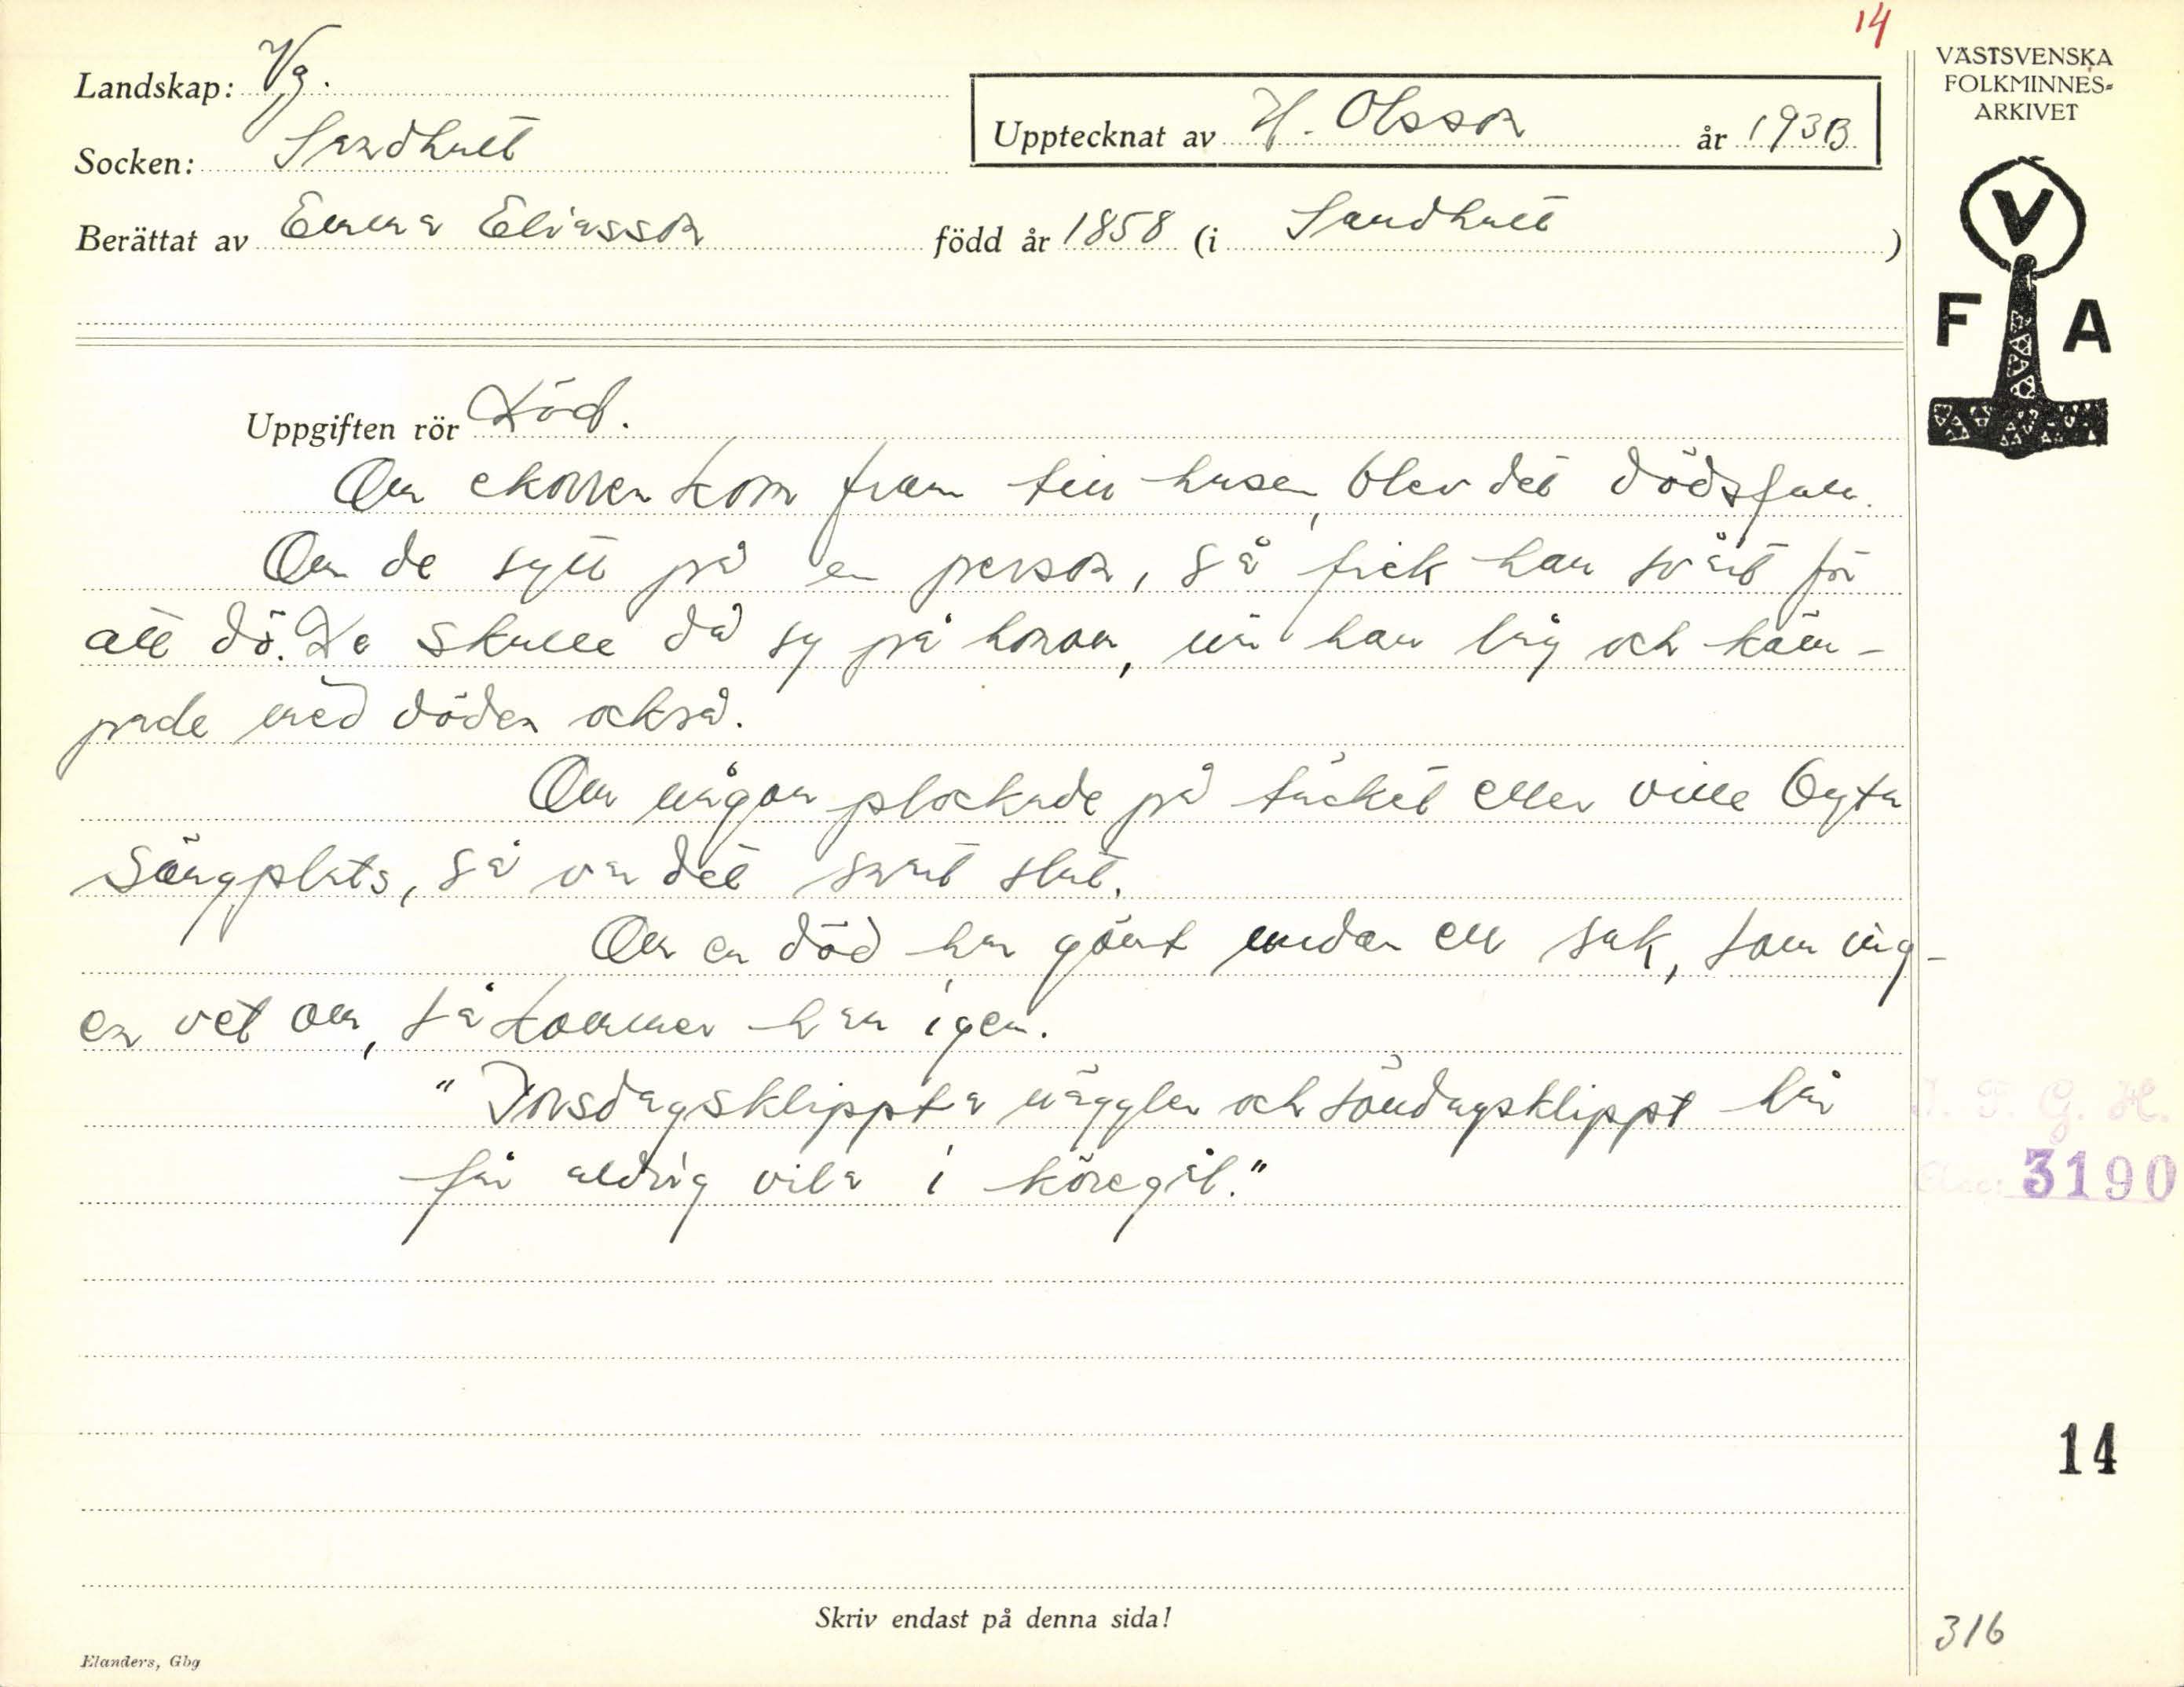 14
Landskap: Vg.
Socken: Sandhult
Berättat av Emma Eliasson
Upptecknat av H. Olsson år 1933
född år 1858 (i Sandhult )
VÄSTSVENSKA
FOLKMINNES-
ARKIVET
V
F A
Uppgiften rör Död.
Om ekorren kom fram till husen, blev det dödsfall.
Om de sytt på en person, så fick han svårt för
att dö. De skulle då sy på honom, när han låg och käm-
pade med döden också.
Om någon plockade på täcket eller ville byta
sängplats, så va det snart slut.
Om en död har gömt undan en sak, som ing-
en vet om, så kommer han igen.
"Torsdagsklippta näggler och söndagsklippt hår
får aldrig vila i köregål."
I. F. G. H.
Acc: 3190
14
Skriv endast på denna sida!
316
Elanders, Gbg